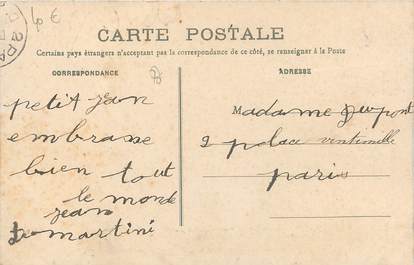 40 €
CARTE POSTALE
Certains pays étrangers n'acceptant pas la correspondance de ce côté, se renseigner à la Poste
CORRESPONDANCE
ADRESSE
petit jean
embrasse
bien tout
le monde
jean
martini
Madame Dupont
2 place vintimille
paris